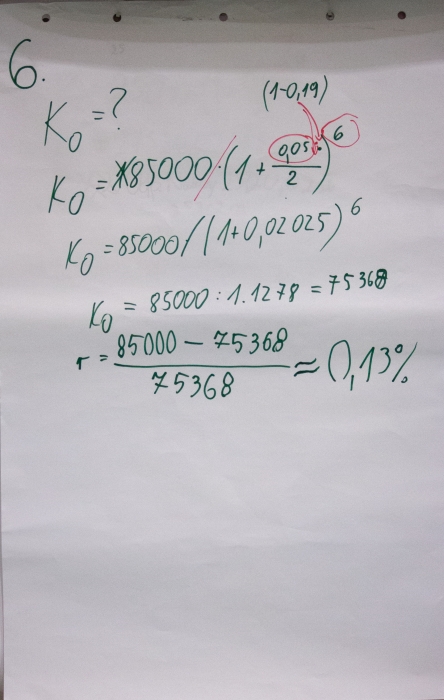 6.
K₀ = ?
(1-0,19)
K₀ = 85000/(1 + 0,05·/2)⁶
K₀ = 85000/(1+0,02025)⁶
K₀ = 85000 : 1.1278 = 75368
r = (85000 - 75368)/75368 ≈ 0,13%